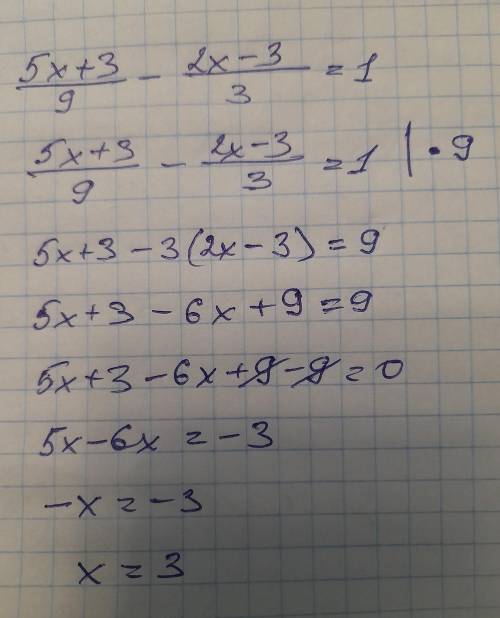 (5x+3)/9 - (2x-3)/3 = 1
(5x+3)/9 - (2x-3)/3 = 1 | • 9
5x+3-3(2x-3)=9
5x+3-6x+9=9
5x+3-6x+9-9=0
5x-6x=-3
-x=-3
x=3